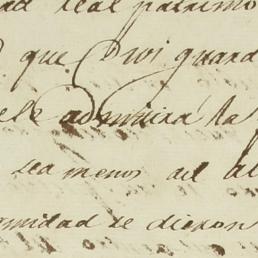 ad real patrimo
que Dios guard
ele admitirá la
sea menos del al
rmidad se dieron